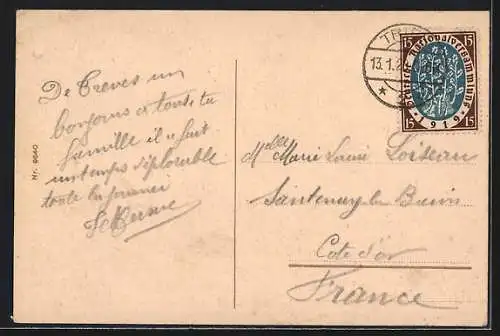 De Treves un
bonjour à toute ta
famille il a fait
un temps déplorable
toute la journée
Nr. 6640
TRI
13.1.2
Deutsche Nationalversammlung
15 15
15 15
1919
Mlle Marie Louise Loiseau
Santenay les Bains
Cote d'or
France